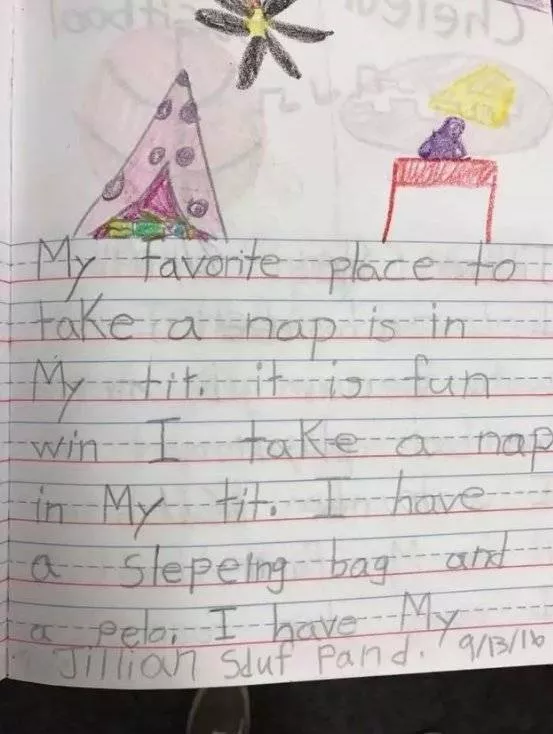 My favorite place to
take a nap is in
My tit. it is fun
win I take a nap
in My tit. I have
a slepeing bag and
a pelo. I have My
Jillian Sduf Pand. 9/13/16